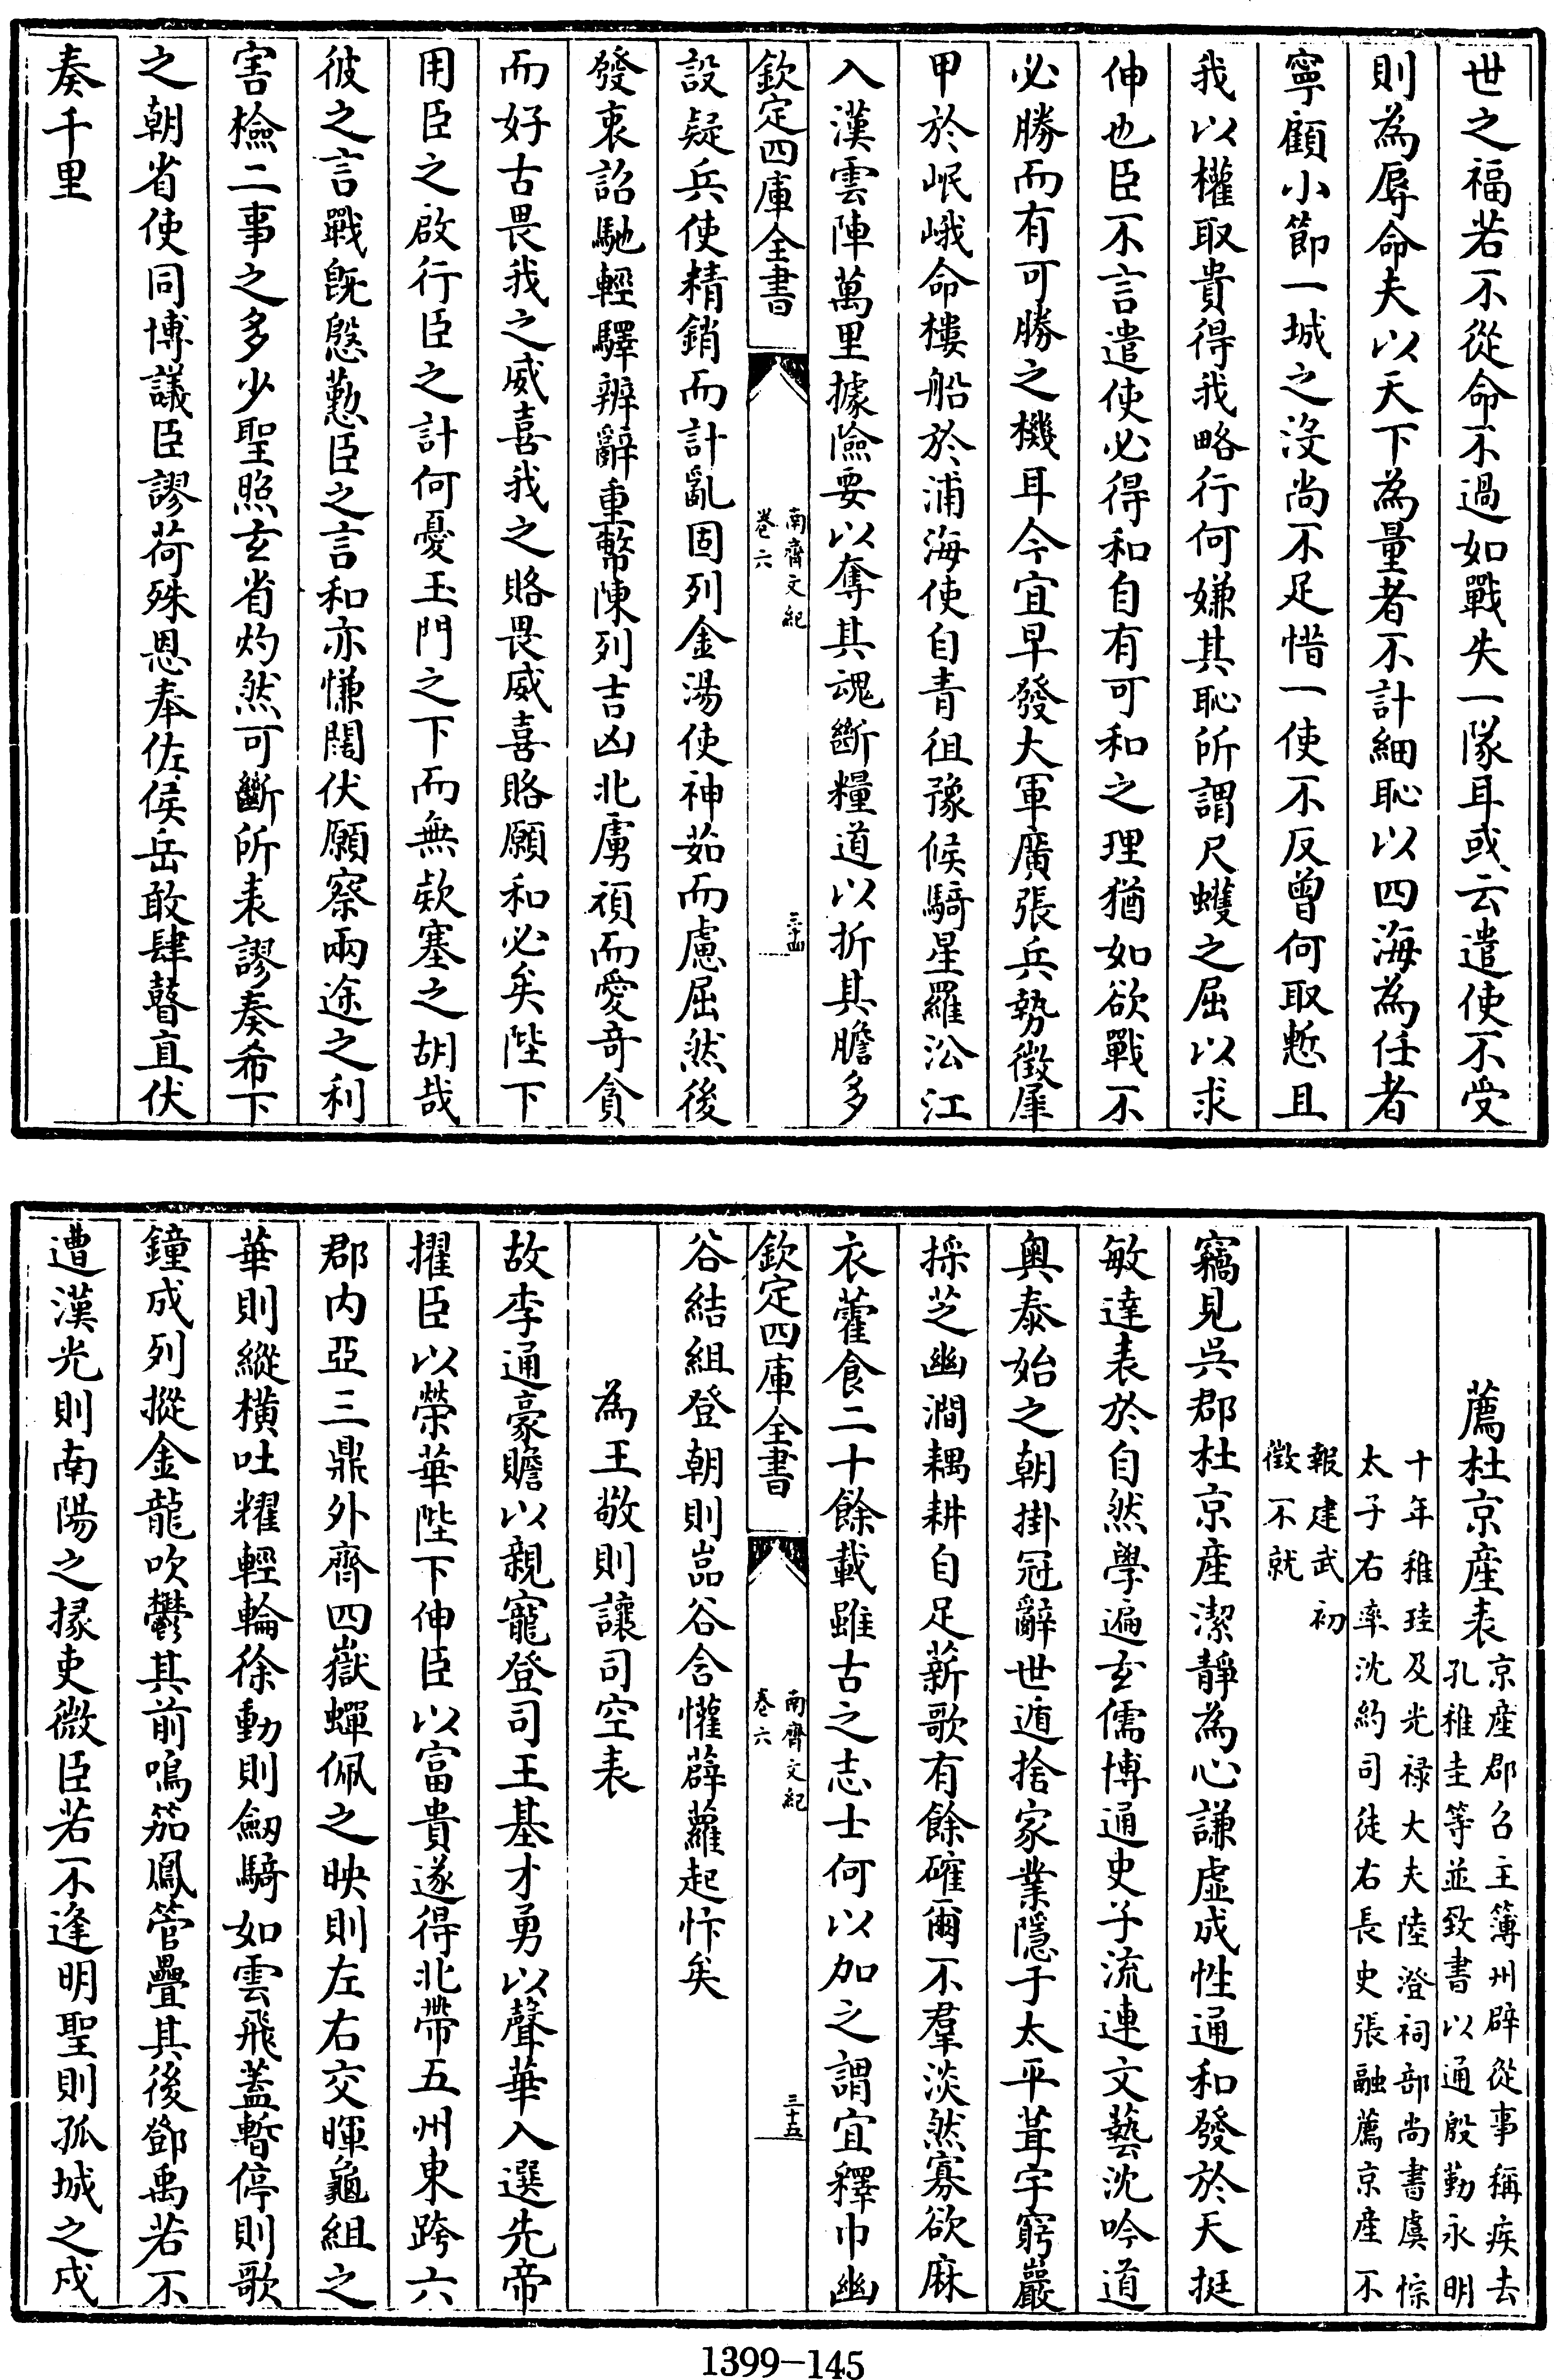 世之福若不從命不過如戰失一隊耳或云遣使不受
則為辱命夫以天下為量者不計細恥以四海為任者
寧顧小節一城之沒尚不足惜一使不反曾何取慙且
我以權取貴得我略行何嫌其恥所謂尺蠖之屈以求
伸也臣不言遣使必得和自有可和之理猶如欲戰不
必勝而有可勝之機耳今宜早發大軍廣張兵勢徵犀
甲於岷峨命樓船於浦海使自青徂豫候騎星羅㳂江
入漢雲陣萬里據險要以奪其魂斷糧道以折其膽多
欽定四庫全書
南齊文紀
卷六
三十四
設疑兵使精銷而計亂固列金湯使神茹而慮屈然後
發衷詔馳輕驛辨辭重幣陳列吉凶北虜頑而愛奇貪
而好古畏我之威喜我之賂畏威喜賂願和必矣陛下
用臣之啟行臣之計何憂玉門之下而無欵塞之胡哉
彼之言戰旣慇懃臣之言和亦慊闊伏願察兩途之利
害檢二事之多少聖照玄省灼然可斷所表謬奏希下
之朝省使同博議臣謬荷殊恩奉佐侯岳敢肆瞽直伏
奏千里
薦杜京産表
京産郡召主簿州辟從事稱疾去
孔稚圭等並致書以通殷勤永明
十年稚珪及光禄大夫陸澄祠部尚書虞悰
太子右率沈約司徒右長史張融薦京産不
報建武初
徵不就
竊見吳郡杜京産潔靜為心謙虛成性通和發於天挺
敏達表於自然學遍玄儒博通史子流連文藝沈吟道
奧泰始之朝掛冠辭世遁捨家業隱于太平葺宇窮巖
採芝幽澗耦耕自足薪歌有餘確爾不羣淡然寡欲麻
衣藿食二十餘載雖古之志士何以加之謂宜釋巾幽
欽定四庫全書
南齊文紀
卷六
三十五
谷結組登朝則喦谷含懽薜蘿起忭矣
為王敬則讓司空表
故李通豪贍以親寵登司王基才勇以聲華入選先帝
擢臣以榮華陛下伸臣以富貴遂得北帶五州東跨六
郡内亞三鼎外齊四嶽蟬佩之映則左右交暉龜組之
華則縱橫吐耀輕輪徐動則劒騎如雲飛蓋暫停則歌
鐘成列摐金龍吹鬱其前鳴笳鳳管疊其後鄧禹若不
遭漢光則南陽之掾吏微臣若不逢明聖則孤城之戍
1399-145